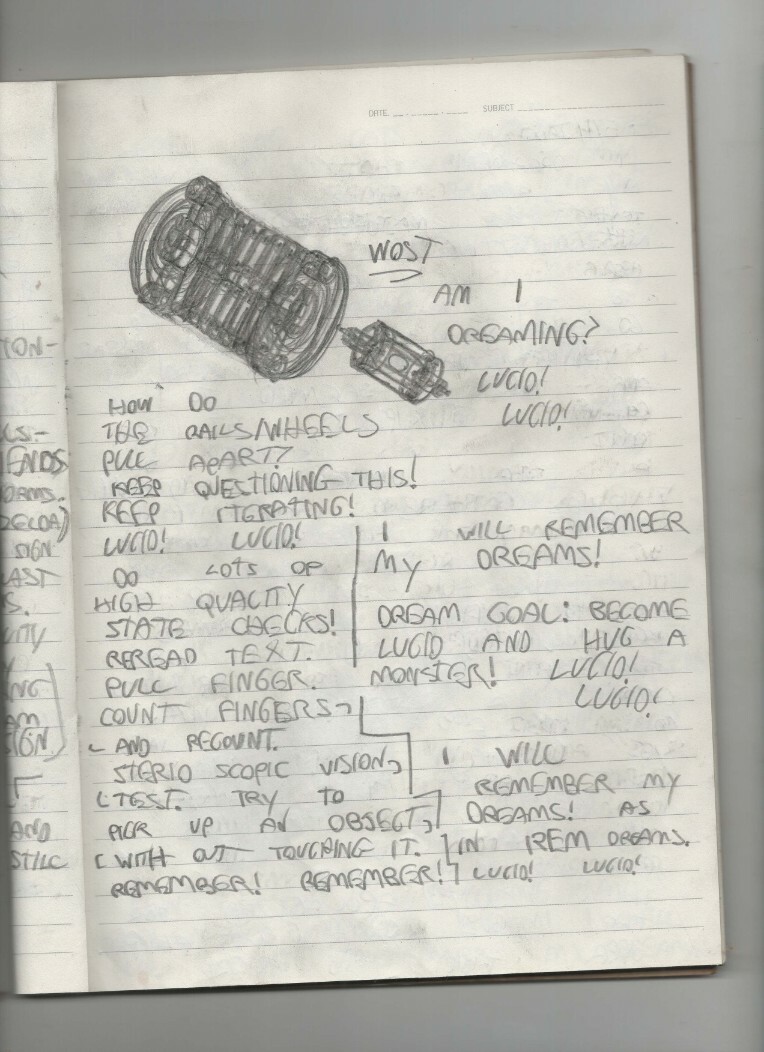 DATE
SUBJECT
WOST
AM I
DREAMING?
LUCID!
LUCID!
HOW DO
THE RAILS/WHEELS
PULL APART?
KEEP QUESTIONING THIS!
KEEP ITERATING!
LUCID! LUCID!
DO LOTS OF
HIGH QUALITY
STATE CHECKS!
REREAD TEXT.
PULL FINGER.
COUNT FINGERS
AND RECOUNT.
STERIO SCOPIC VISION
TEST. TRY TO
PICK UP AN OBJECT
WITH OUT TOUCHING IT.
REMEMBER! REMEMBER!
I WILL REMEMBER
MY DREAMS!
DREAM GOAL: BECOME
LUCID AND HUG A
MONSTER! LUCID!
LUCID!
I WILL
REMEMBER MY
DREAMS! AS
IN REM DREAMS.
LUCID! LUCID!
TON-
LS-
IENDS
ORMS.
SIGN
LAST
S.
NG
AM
SIGN
AND
STILL